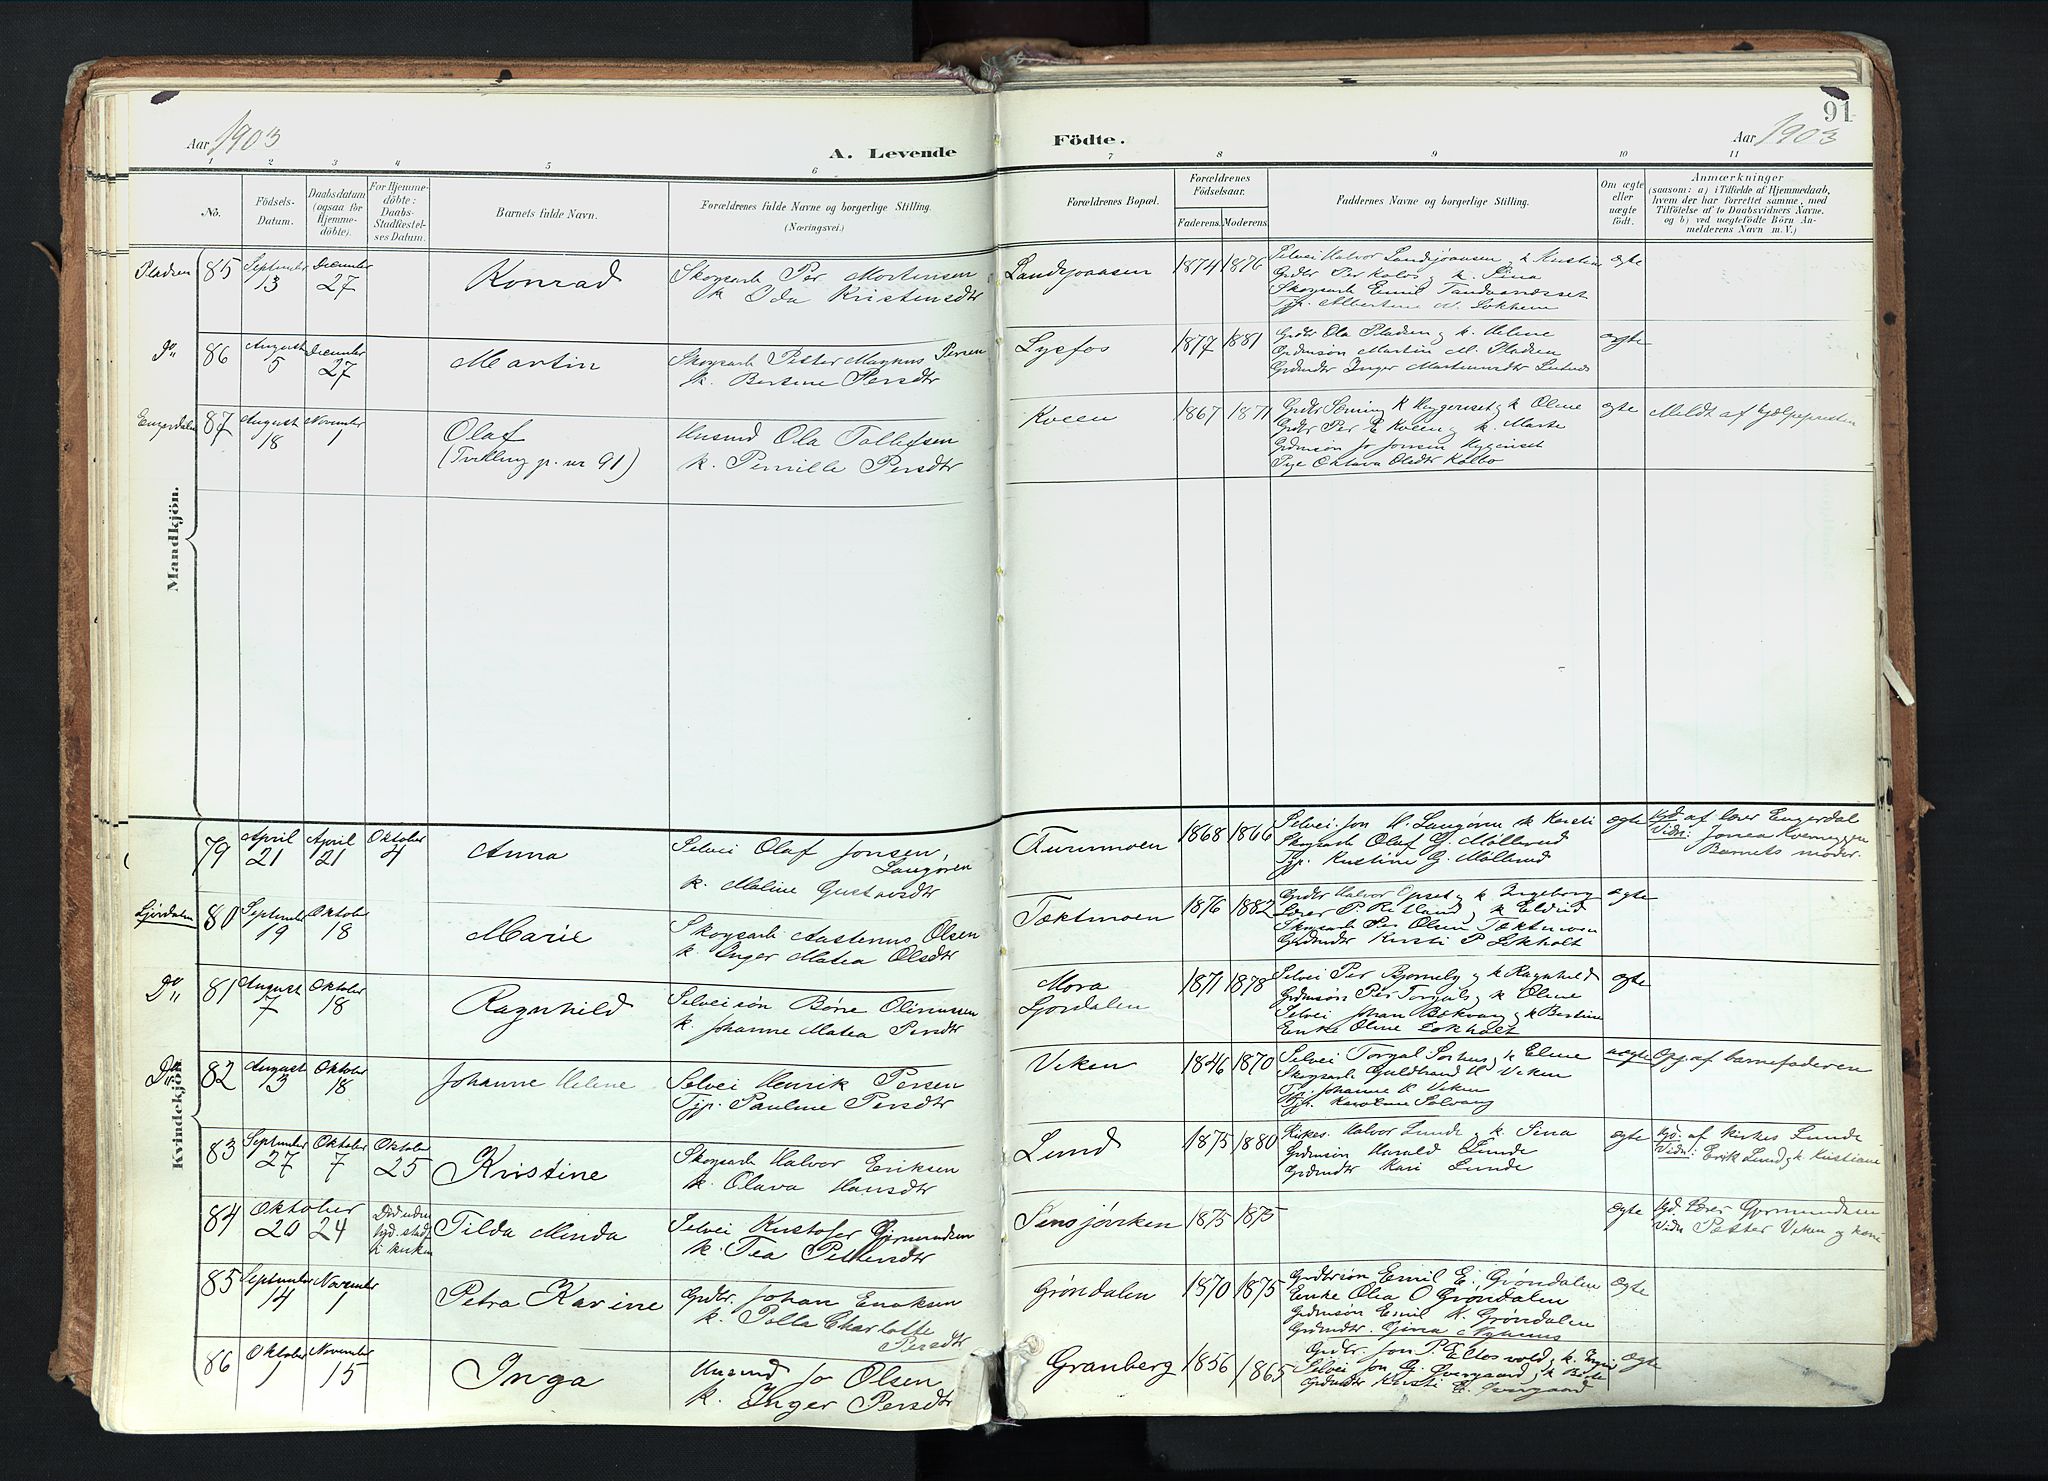 91
Aar 1903
A. Levende
Födte.
Aar 1903
1 2 3 4 5 6 7 8 9 10 11
No.
Födsels-Datum.
Daabsdatum (ogsaa for Hjemme-döbte).
For Hjemme-döbte: Daabs-Stadfæstel-ses Datum.
Barnets fulde Navn.
Forældrenes fulde Navne og borgerlige Stilling. (Næringsvei.)
Forældrenes Bopæl.
Forældrenes Födselsaar.
Faderens. Moderens.
Faddernes Navne og borgerlige Stilling.
Om ægte eller uægte födt.
Anmærkninger
(saasom: a) i Tilfælde af Hjemmedaab, hvem der har forrettet samme, med Tilföielse af to Daabsvidners Navne. og b) ved uægtefödte Börn An-melderens Navn m. V.)
Mandkjön.
Pladsen 85 September 13 December 27 Konrad
Skogsarb Per Mortensen
k. Ida Kristensdtr
Landsjøaasen 1874 1876
Selvei Halvor Landsjøaasen k Kristine
Grdbr Per Kolos k. Sina
Skogsarb Emil Tandvandsset
Tjp. Albertine M. Løkheim
ægte
Do 86 August 5 December 27 Martin
Skogsarb Petter Magnus Persen
k. Bertine Persdtr
Lycfos 1877 1881
Grdbr Ola Pladsen k. Helene
Grdmsøn Martin M. Pladsen
Grdmdtr Inger
ægte
Engerdalen 87 August 18 November 1 Olaf
(Tvilling p. nr 91)
Husmd Ola Tollefsen
k. Pernille Persdtr
Kveen 1867 1871
Grdbr Søming K Hyggenset k Oline
Grdbr Per E Kveen k. Marte
Grdmsøn Jo Jonsen Hyggenset
Pige Oktava Olsdtr Kolbo
ægte
Meldt af hjælpepresten
Kvindekjön
79 April 21 April 21 Oktober 4 Anna
Selvei Olaf Jonsen,
Langøren
k. Maline Gustavsdtr
Furumoen 1868 1866
Selvei Jon H. Langøren k Kersti
Skogsarb Olaf G. Møllerud
Tjp. Kristine G. Møllerud
ægte
Hjd. af lærer Engerdal
Vidn: Jonea Kvernæggen
Barnets moder.
Ljørdalen 80 September 19 Oktober 18 Marie
Skogsarb Aastenus Olsen
k. Inger Matea Olsdtr
Tæktmoen 1876 1882
Grdbr Halvor Opset k Ingeborg
Lærer P. Ritland k Eldrid
Skogsarb Per Olsen Tæktmoen
Grdmdtr Kersti P. Løkholt
ægte
Do 81 August 7 Oktober 18 Ragnhild
Selveisøn Børre Olimussen
k. Johanne Matea Persdtr
Mora
Ljordalen 1871 1878
Selvei Per Bjørneby k Ragnhild
Grdmsøn Per Torgals k Oline
Selvei Johan Bækvang k Bertine
Enke Oline Løkholt
ægte
Do 82 August 13 Oktober 18 Johanne Helene
Selvei Henrik Persen
Tjp. Pauline Persdtr
Viken 1846 1870
Selvei Torgal Sorhus k Eline
Skogsarb Guldbrand H Viken
Tjp. Johanne H. Viken
Tjp. Karoline Solvang
uægte
Opg. af barnefaderen
83 September 27 Oktober 7 Oktober 25 Kristine
Skogsarb Halvor Eriksen
k. Olava Hansdtr
Lund 1875 1880
Kirkes. Halvor Lunde k. Sina
Grdmsøn Harald Lunde
Grdmdtr Kari Lunde
ægte
Hjd. af kirkes Lunde
Vidn: Erik Lund k Kristiane
84 Oktober 20 24 Død uden hjd. stadf. i kirken Tilda Minda
Selvei Kristofer Gjermundsen
k. Tea Pettersdtr
Sensjøviken 1875 1875
ægte
Hjd. Lærer Gjermundsen
Vidn Petter Viken og kone
85 September 14 November 1 Petra Karine
Grdbr. Johan Enoksen
k. Polla Charlotte
Persdtr
Grøndalen 1870 1875
Grdbrsøn Emil E. Grøndalen
Enke Olea O Grøndalen
Grdmsøn Emil K. Grøndalen
Grdmdtr. Gina Nyhuus
ægte
86 Oktober 1 November 15 Inga
Husmd Jo Olsen
k. Inger Persdtr
Granberg 1856 1865
Grdbr. Jon P Elvosvold k. Inger
Selvei Jon G. Øvergaard k Berte
Grdmdtr Kersti E. Øvergaard
ægte